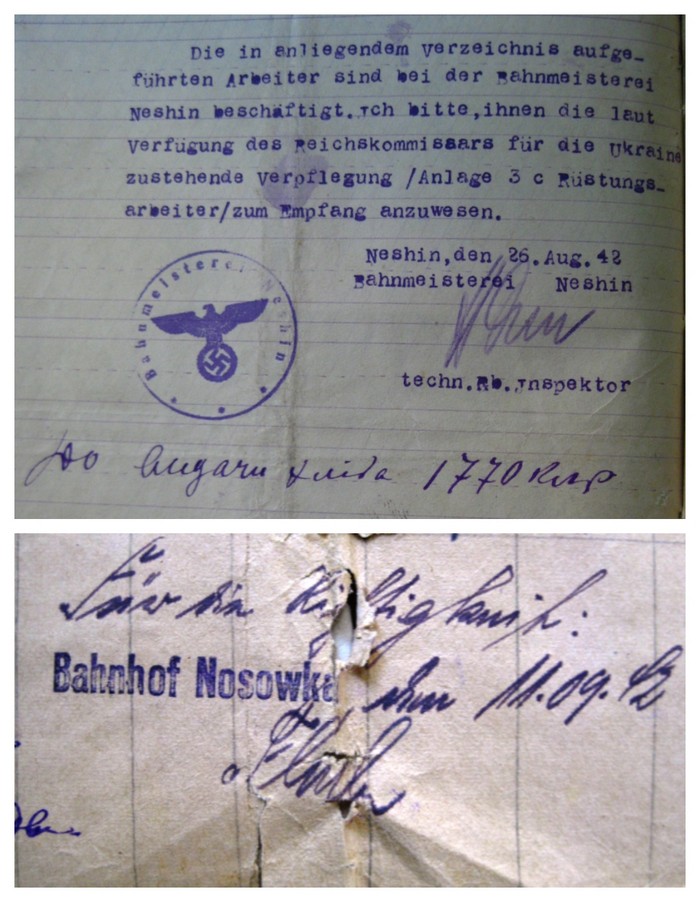 Die in anliegendem Verzeichnis aufge_
führten Arbeiter sind bei der Bahnmeisterei
Neshin beschäftigt.Ich bitte,ihnen die laut
Verfügung des Reichskommissars für die Ukraine
zustehende Verpflegung /Anlage 3 c Rüstungs_
arbeiter/zum Empfang anzuwesen.
Neshin,den 26.Aug.42
Bahnmeisterei Neshin
techn.Rb.Inspektor
Bahnmeisterei Neshin
1770
Für die Richtigkeit:
Bahnhof Nosowka, den 11.09.42